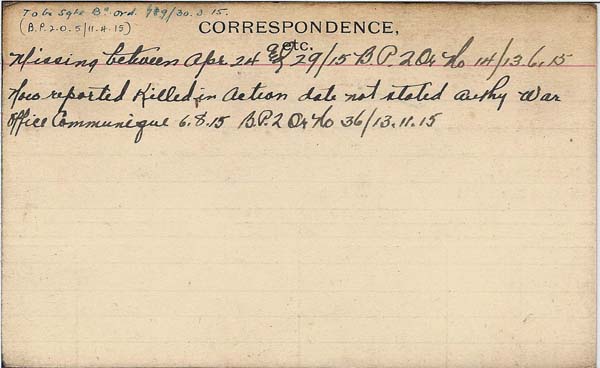 To be Sgte Bn. Ord. 989/30.3.15.
(B.P. 2.O. 5/11.4.15)
CORRESPONDENCE,
etc.
Missing between Apr. 24 & 29/15 B.P. 2 Or No 14/13.6.15
Now reported Killed in Action date not stated Authy War
Office Communique 6.8.15 B.P. 2 Or No 36/13.11.15